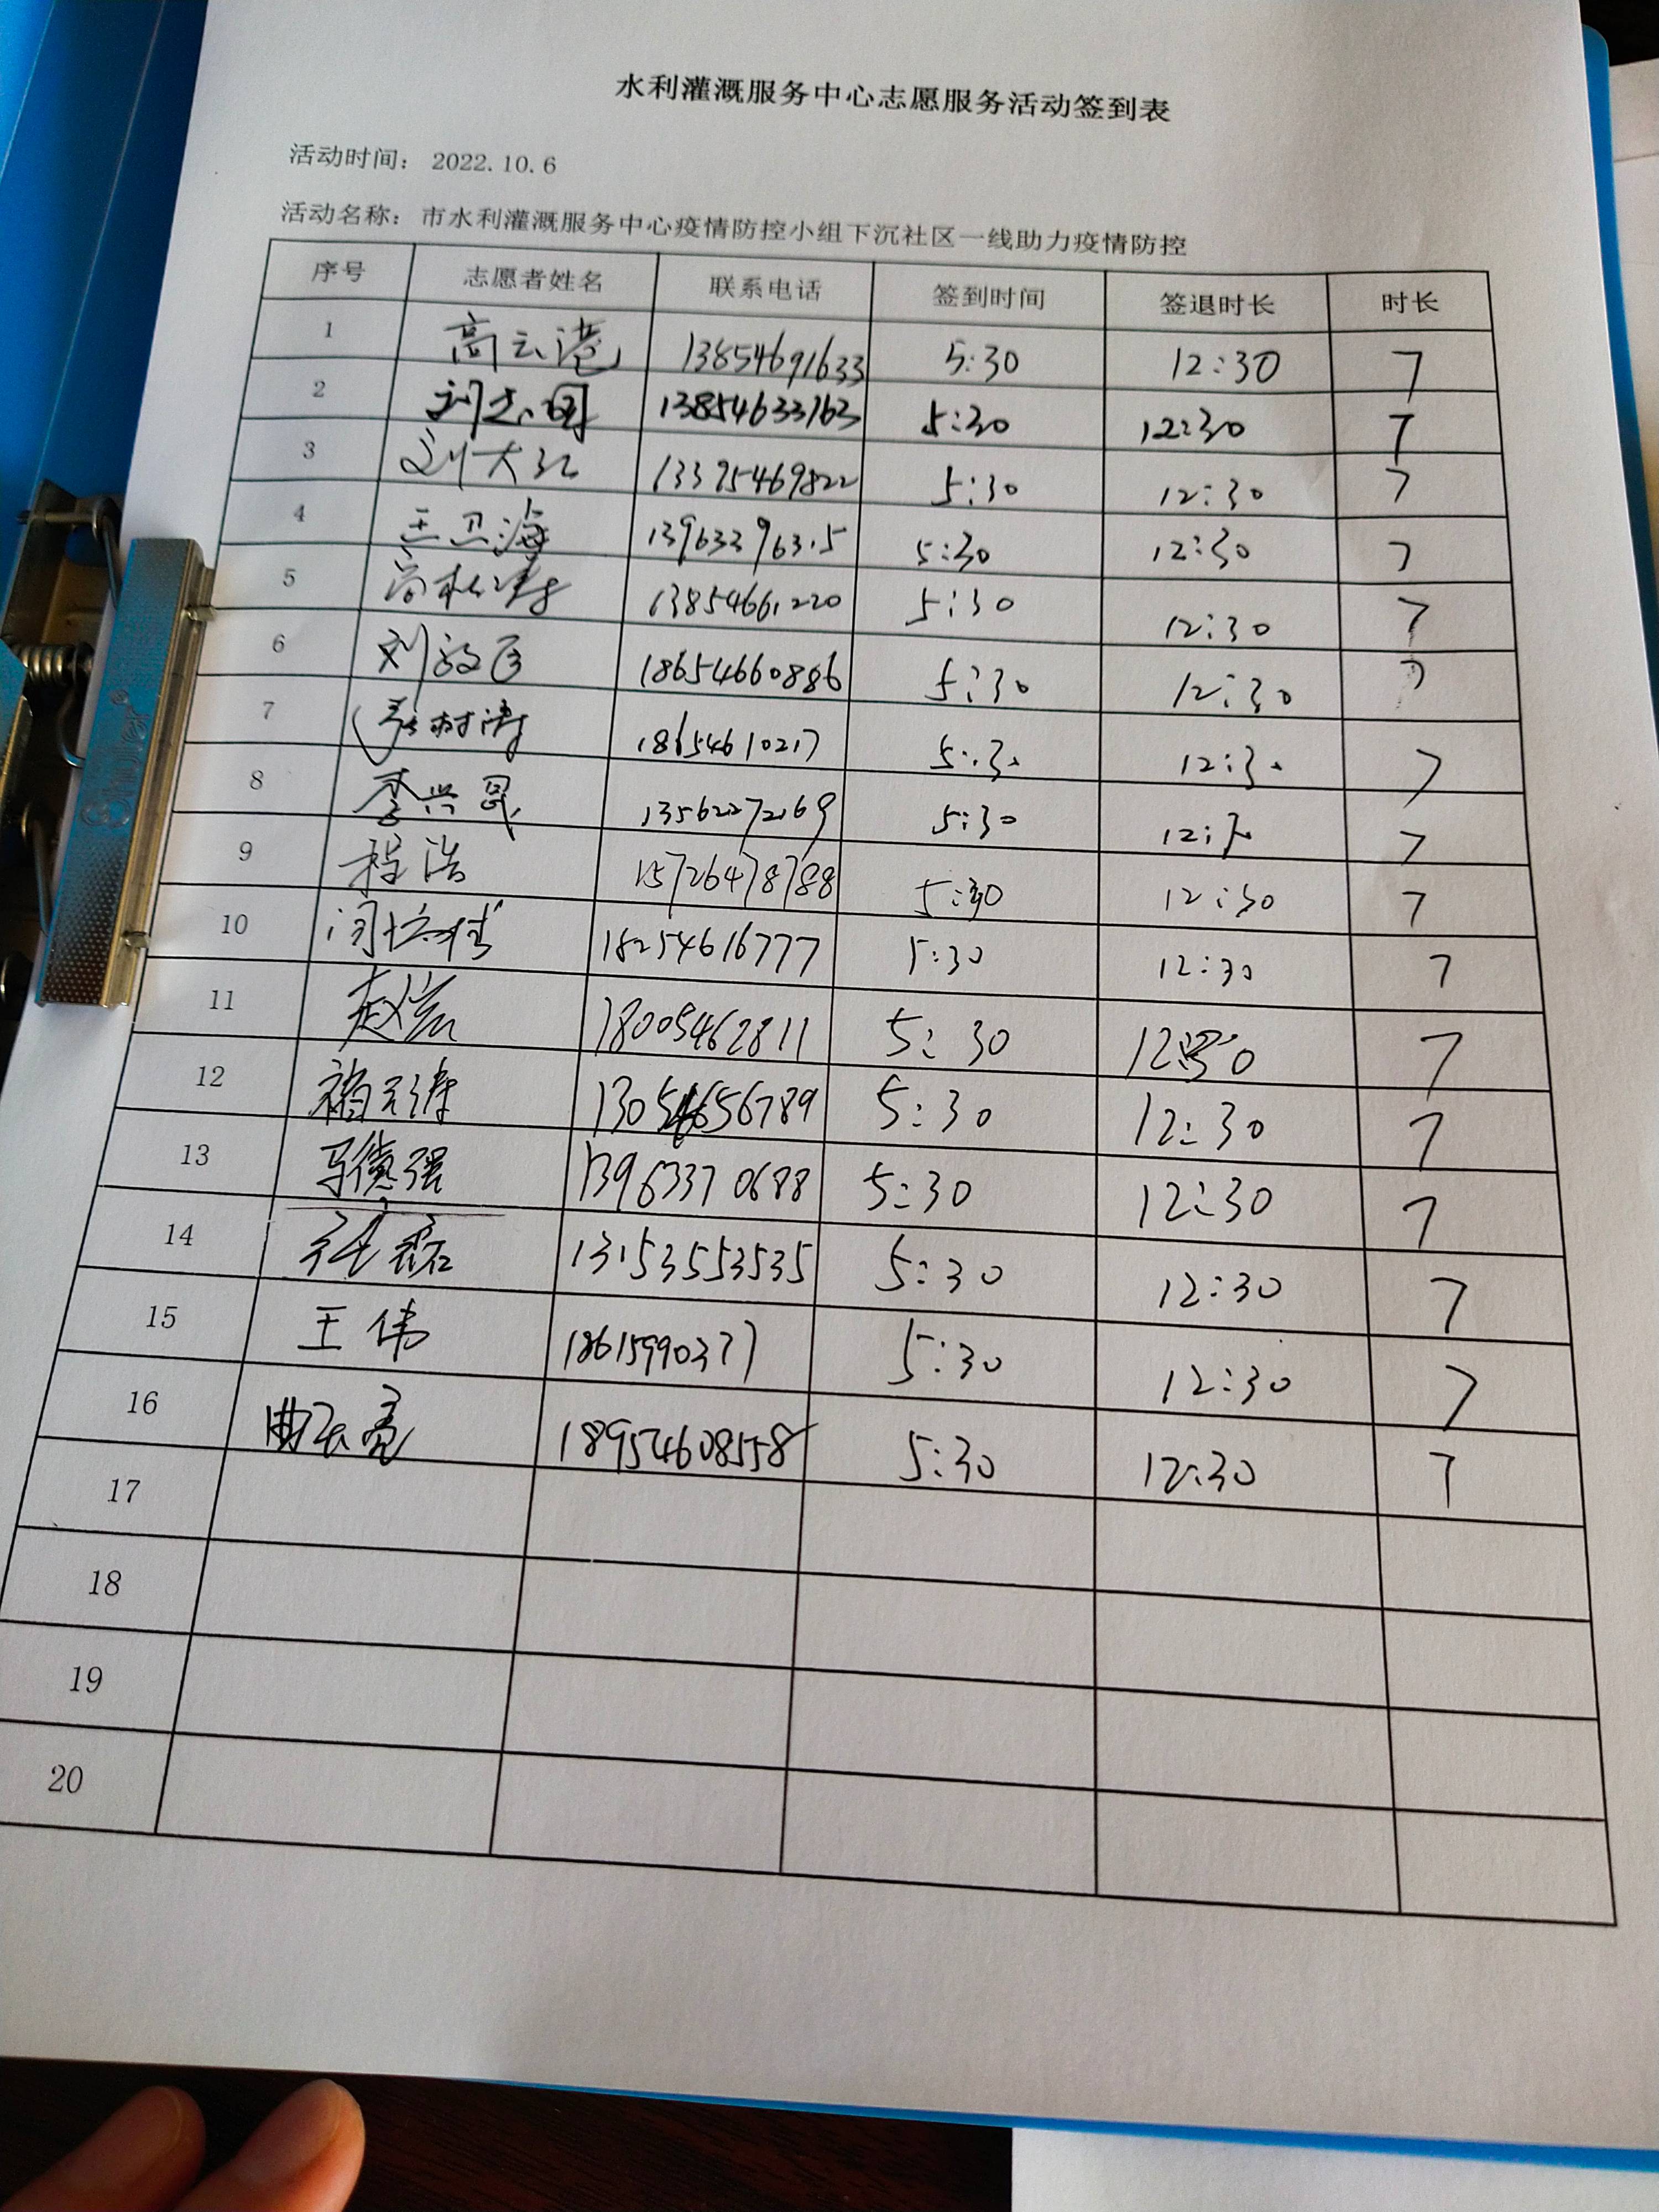 水利灌溉服务中心志愿服务活动签到表
活动时间: 2022.10.6
活动名称: 市水利灌溉服务中心疫情防控小组下沉社区一线助力疫情防控
序号 志愿者姓名 联系电话 签到时间 签退时长 时长
1 高云港 13854691633 5:30 12:30 7
2 刘志国 13854633163 5:30 12:30 7
3 刘大江 13395469822 5:30 12:30 7
4 王卫海 5:30 12:30 7
5 13854661220 5:30 12:30 7
6 刘 18654660886 5:30 12:30 7
7 18654610217 5:30 12:30 7
8 李兴民 13562272169 5:30 12:30 7
9 程浩 15726478788 5:30 12:30 7
10 18254616777 5:30 12:30 7
11 18005462811 5:30 12:30 7
12 13054656789 5:30 12:30 7
13 马德强 13963370688 5:30 12:30 7
14 13153553535 5:30 12:30 7
15 王伟 18615990377 5:30 12:30 7
16 18954608558 5:30 12:30 7
17
18
19
20